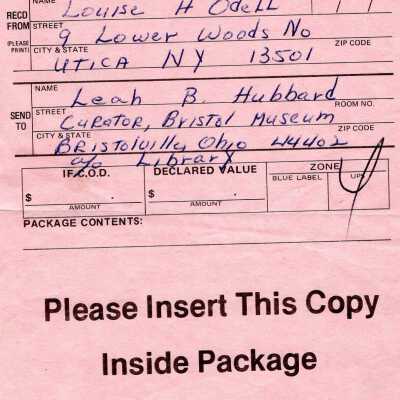 NAME
RECD Louise H Odell
FROM STREET
(PLEASE PRINT) 9 Lower Woods No
CITY & STATE ZIP CODE
UTICA NY 13501
NAME
Leah B. Hubbard
SEND TO STREET ROOM NO.
Curator, Bristol Museum
CITY & STATE ZIP CODE
Bristolville Ohio 44402
c/o Library
IF C.O.D. DECLARED VALUE ZONE
BLUE LABEL UPS
$ $
AMOUNT AMOUNT
PACKAGE CONTENTS:
Please Insert This Copy
Inside Package